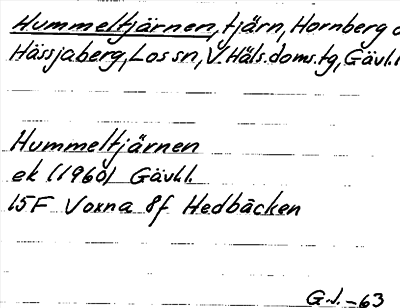 Hummeltjärnen, tjärn, Hornberg o
Hässjaberg, Los sn, V. Häls. doms. tg, Gävl. l
Hummeltjärnen
ek (1960) Gävl. l.
15F Voxna 8f Hedbäcken
G. J. -63